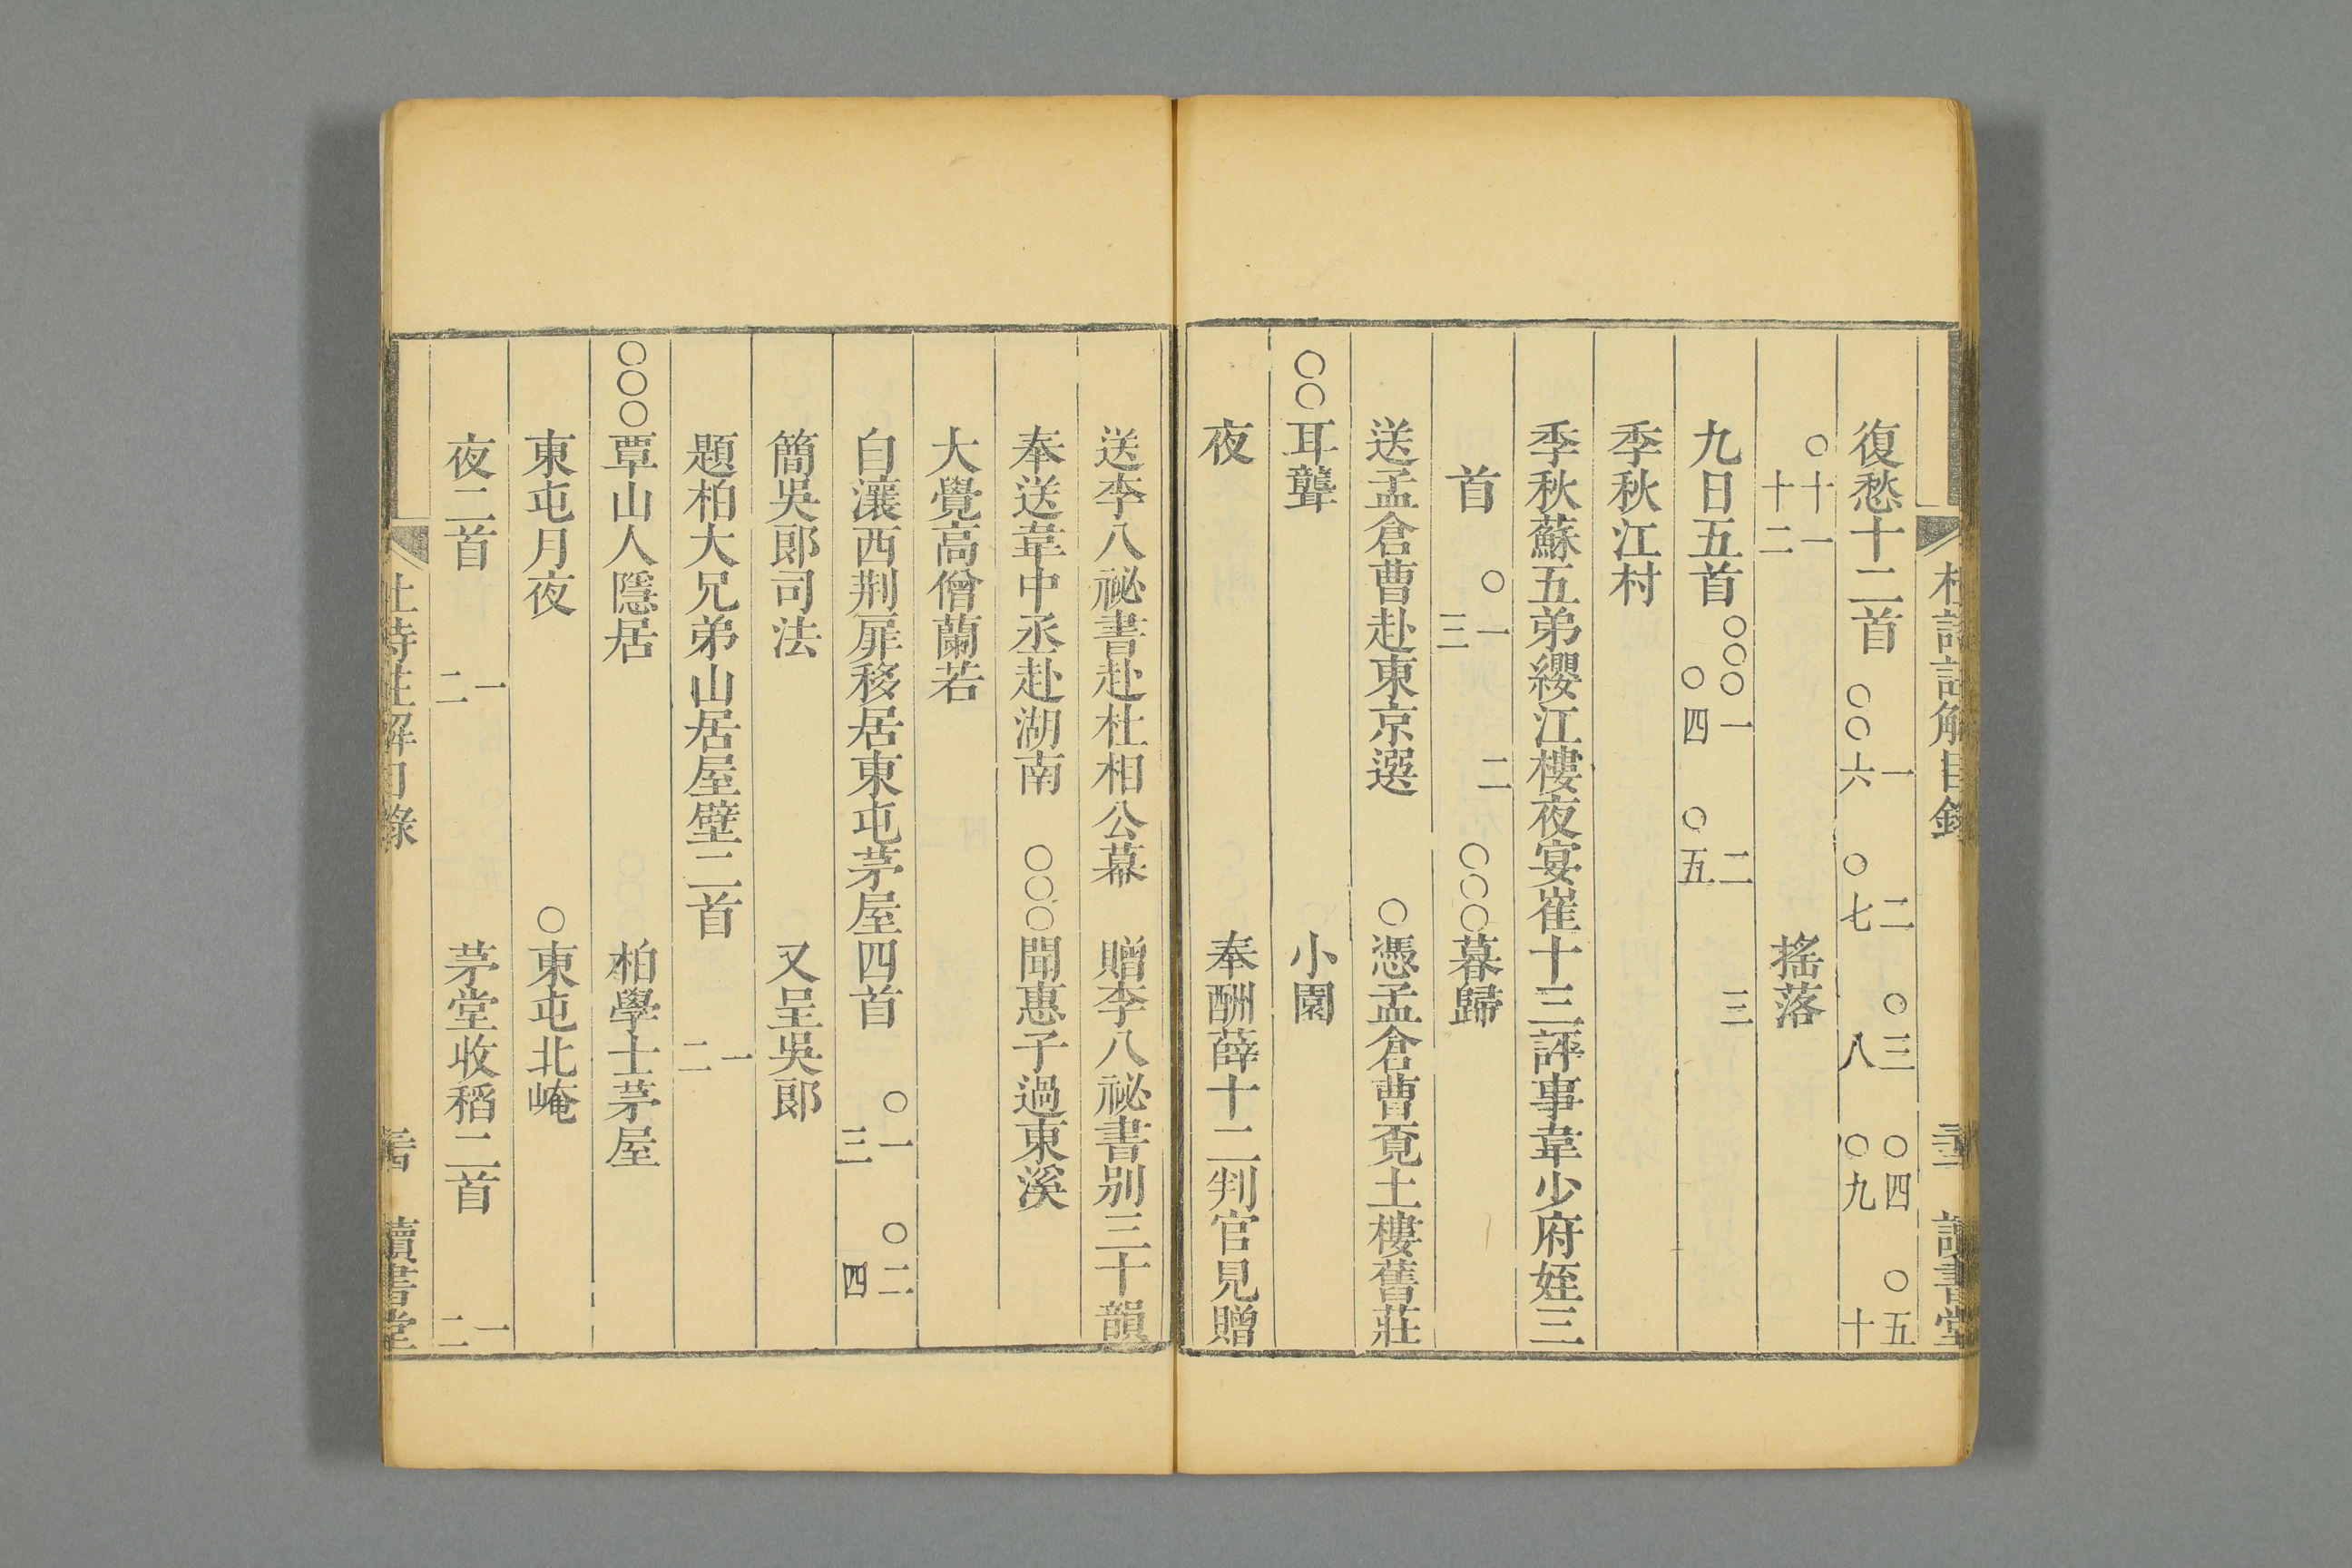 復愁十二首 一 二 〇三 〇四 〇五 〇〇六 〇七 八 〇九 十
〇十一 十二 搖落
九日五首 〇〇〇一 二 三 〇四 〇五
季秋江村
季秋蘇五弟纓江樓夜宴崔十三評事韋少府姪三
首 〇一 二 三 〇〇〇暮歸
送孟倉曹赴東京選 〇憑孟倉曹覔土樓舊莊
〇〇耳聾 小園
夜 奉酬薛十二判官見贈
送李八祕書赴杜相公幕 贈李八祕書别三十韻
奉送韋中丞赴湖南 〇〇〇聞惠子過東溪
大覺高僧蘭若
自瀼西荆扉移居東屯茅屋四首 〇一 〇二 三 四
簡吳郎司法 又呈吳郎
題柏大兄弟山居屋壁二首 一 二
〇〇〇覃山人隱居 柏學士茅屋
東屯月夜 〇東屯北崦
夜二首 一 二 茅堂收稻二首 一 二
杜詩註解目錄 讀書堂